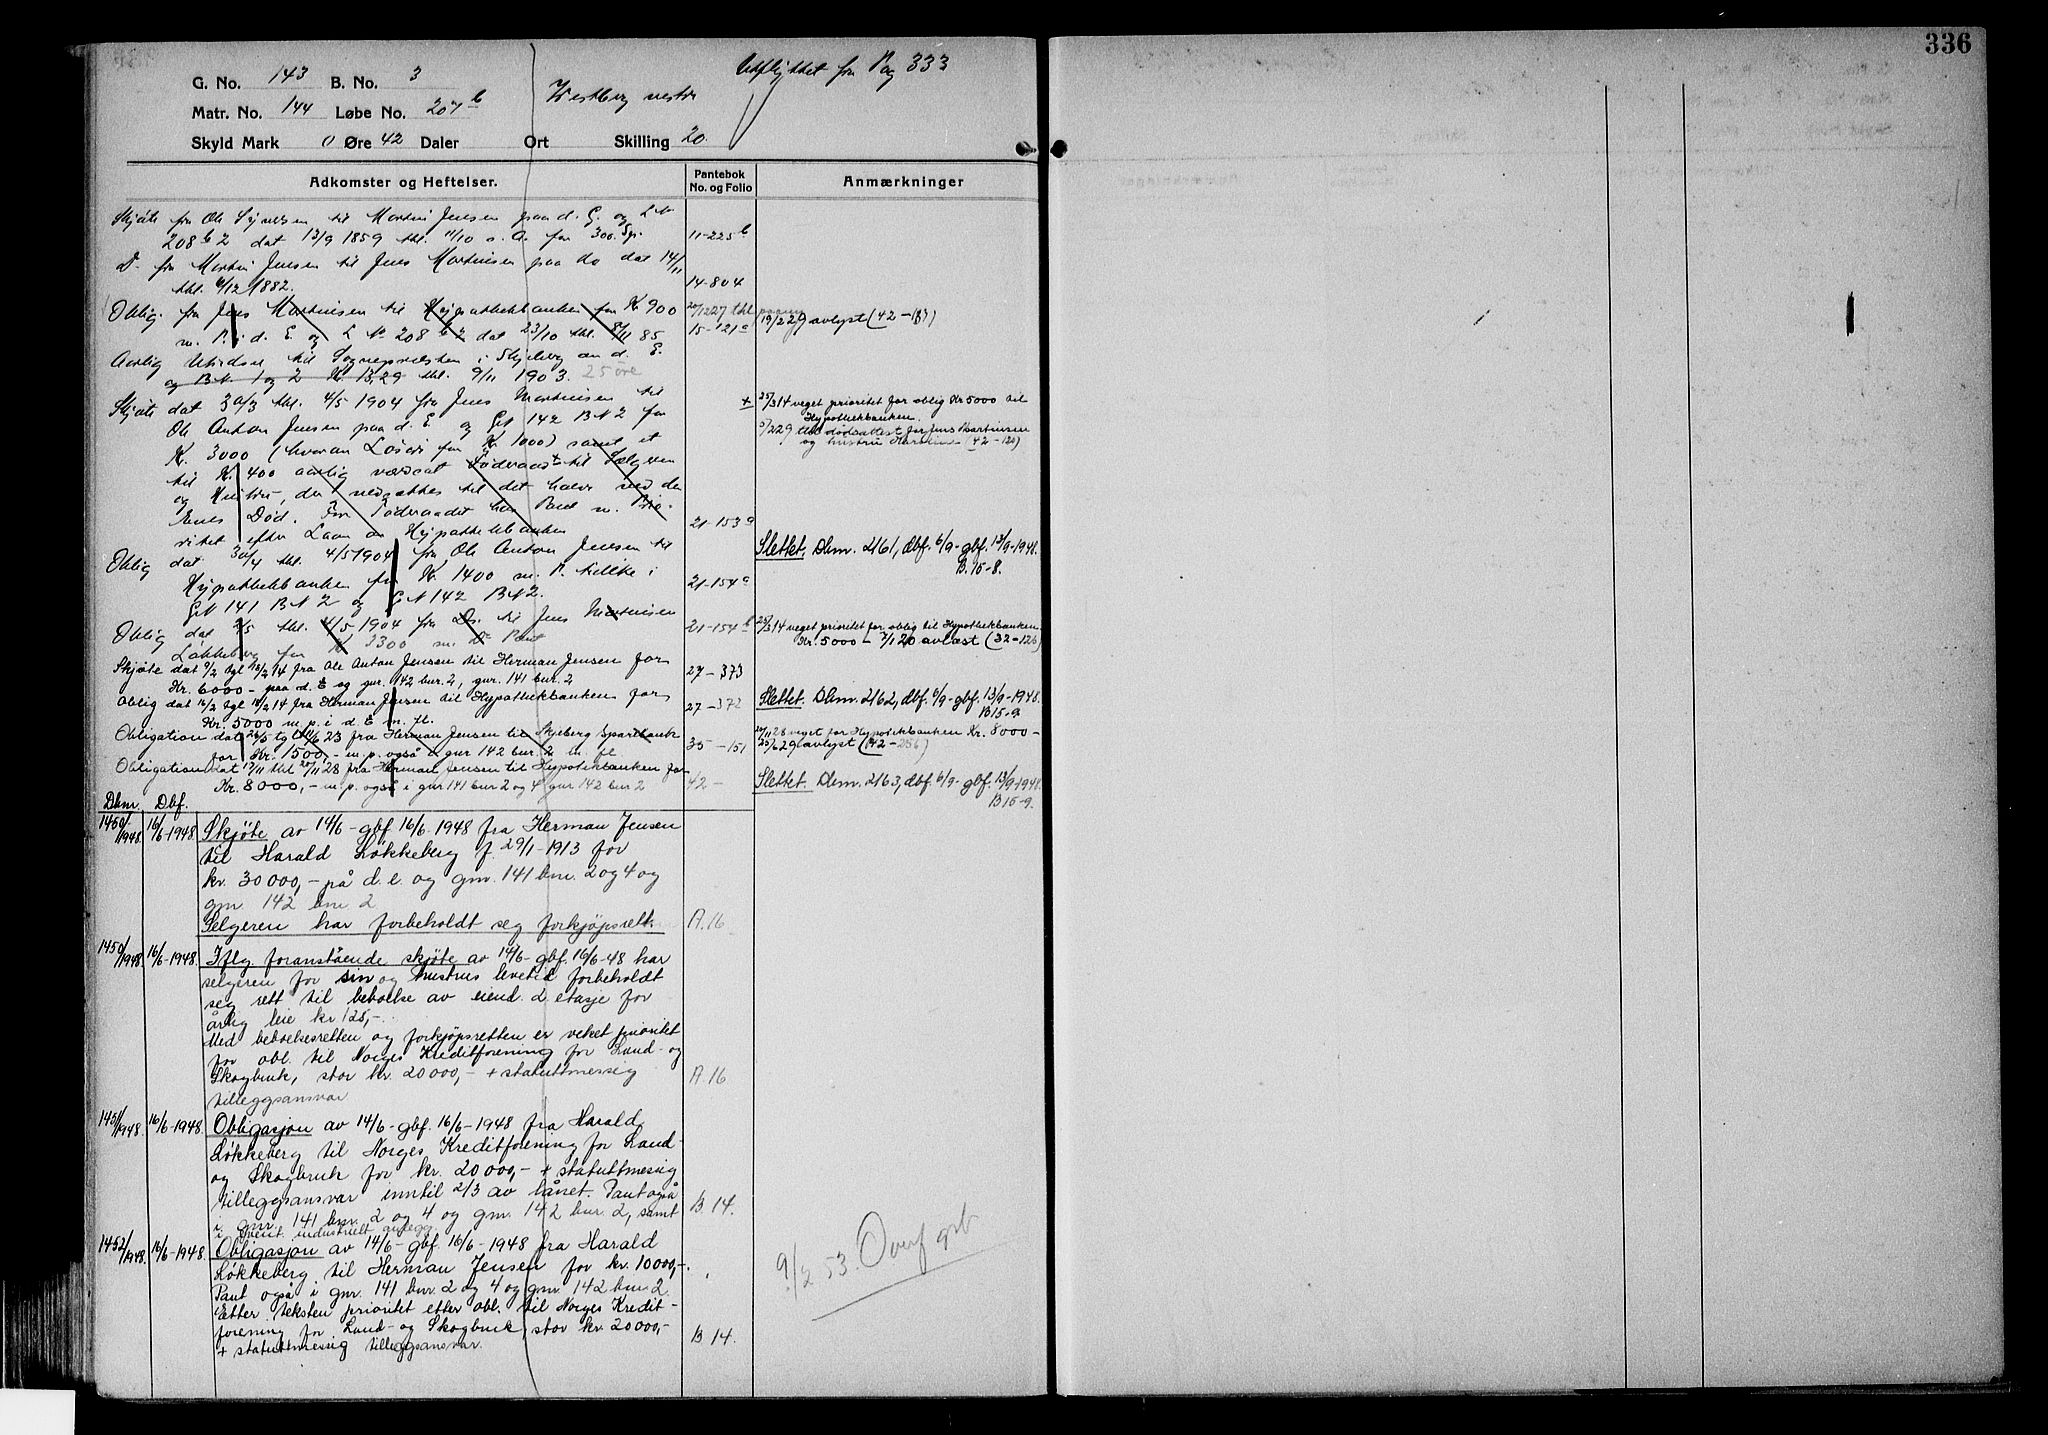 336
Udflyttet fra Pag 333
G. No. 143 B. No. 3
Matr. No. 144 Løbe No. 207 b Westberg vestre
Skyld Mark 0 Øre 42 Daler Ort Skilling 20.
Adkomster og Heftelser. Pantebok No. og Folio Anmærkninger
Skjøte fra Ole Syversen til Martin Jensen paa d. E. og L No
208 b 2 dat 13/9 1859 thl. 11/10 s. A. for 300 Sp. 11-225 b
D. fra Martin Jensen til Jens Martinsen paa do dat 14/11
thl. 6/12 1882. 14-804
Oblig. fra Jens Martinsen til Hypothekbanken for Kr 900 20/12 27 thl
m. P. i d. E. og L No 208 b 2 dat 23/10 thl. 8/11 85. 15-121 a 19/2 29 avlyst (42-183)
Aarlig til i Skjeberg an d. E.
og B N 1 og 2 Kr. 13,29 thl. 9/11 1903. 25 øre
Skjøte dat 30/3 thl. 4/5 1904 fra Jens Martinsen til + 25/3 14 veget prioritet for oblig Kr 5000 til
Ole Anton Jensen paa d. E og GN 142 BN 2 for Hypothekbanken.
Kr. 3000 (hvoraf Løsøre for Kr. 1000) samt et 5/2 29 thl dødsattest for Jens Martinsen
til Kr. 400 aarlig værdsat Føderaad til Sælgeren og hustru (42-120)
og Hustru, der nedsættes til det halve ved den
Enes Død. For Føderaadet har Pant m. Prio-
ritet efter Laan an Hypothekbanken 21-153 a
Oblig dat 30/4 thl. 4/5 1904 fra Ole Anton Jensen til Slettet. Dbm. 2161, dbf. 6/9 - gbf. 13/9-1948.
Hypothekbanken for Kr. 1400 m. P. tillike i B. 15-8.
GN 141 BN 2 og GN 142 BN 2. 21-154 a
Oblig dat 2/5 thl. 4/5 1904 fra Ds. til Jens Martinsen 21-154 b 25/3 14 veget prioritet for oblig til Hypothekbanken
Løkkeberg for Kr. 2300 m. Do Pant Kr. 5000 - 7/1 20 avlæst (32-126)
Skjøte dat 9/2 tgl 18/2 14 fra Ole Anton Jensen til Herman Jensen for 27-373
Kr. 6000 - paa d. E og gnr. 142 bnr. 2, gnr. 141 bnr. 2
Oblig dat 16/2 tgl 18/2 14 fra Herman Jensen til Hypothekbanken for 27-372 Slettet. Dbm. 2162, dbf. 6/9 - gbf. 13/9-1948.
Kr. 5000 m. p. i d. E m. fl. B 15-9
Obligation dat 26/5 tgl 11/6 23 fra Herman Jensen til Skjeberg Sparebank 35-151 20/11 28 veget for Hypotekbanken Kr. 8000 -
for Kr. 1500,- m. p. også i gnr 142 bnr. 2 m. fl 25/6 29 avlyst (42-256)
Obligation dat 17/11 thl 20/11 28 fra Herman Jensen til Hypotekbanken for 42- Slettet. Dbm. 2163, dbf. 6/9 - gbf. 13/9-1948.
Kr. 8000,- m. p. også i gnr 141 bnr 2 og 4 gnr 142 bnr 2 B 15-9.
Dbm. Dbf.
1450/1948 16/6-1948 Skjöte av 14/6 - gbf 16/6-1948 fra Herman Jensen
til Harald Løkkeberg f. 29/1-1913 for
kr. 30000,- på d. e. og gnr. 141 bnr. 2 og 4 og
gnr. 142 bnr 2
Selgeren har forbeholdt seg forkjøpsrett. A. 16
1450/1948 16/6-1948. Iflg. foranstående skjøte av 14/6 - gbf. 16/6-48 har
selgeren for sin og hustrus levetid forbeholdt
seg rett til beboelse av eiend. 2. etasje for
årlig leie kr 125,-.
Med beboelsesretten og forkjøpsretten er veket prioritet
for obl. til Norges Kreditforening for Land- og
Skogbruk, stor kr. 20000,- + statuttmessig A. 16
tilleggsansvar
1451/1948. 16/6-1948. Obligasjon av 14/6 - gbf. 16/6-1948 fra Harald
Løkkeberg til Norges Kreditforening for Land-
og Skogbruk for kr. 20000,- + statuttmessig
tilleggsansvar inntil 2/3 av lånet. Pant også B 14.
i gnr. 141 bnr. 2 og 4 og gnr. 142 bnr. 2, samt
i event. industrielt anlegg.
1452/1948. 16/6-1948. Obligasjon av 14/6 - gbf. 16/6-1948 fra Harald
Løkkeberg til Herman Jensen for kr. 10000,-.
Pant også i gnr. 141 bnr. 2 og 4 og gnr. 142 bnr 2.
Etter teksten prioritet etter obl. til Norges Kredit-
forening for Land- og Skogbruk, stor kr. 20000,-
+ statuttmessig tilleggsansvar. B 14.
9/2 53. Overf grb